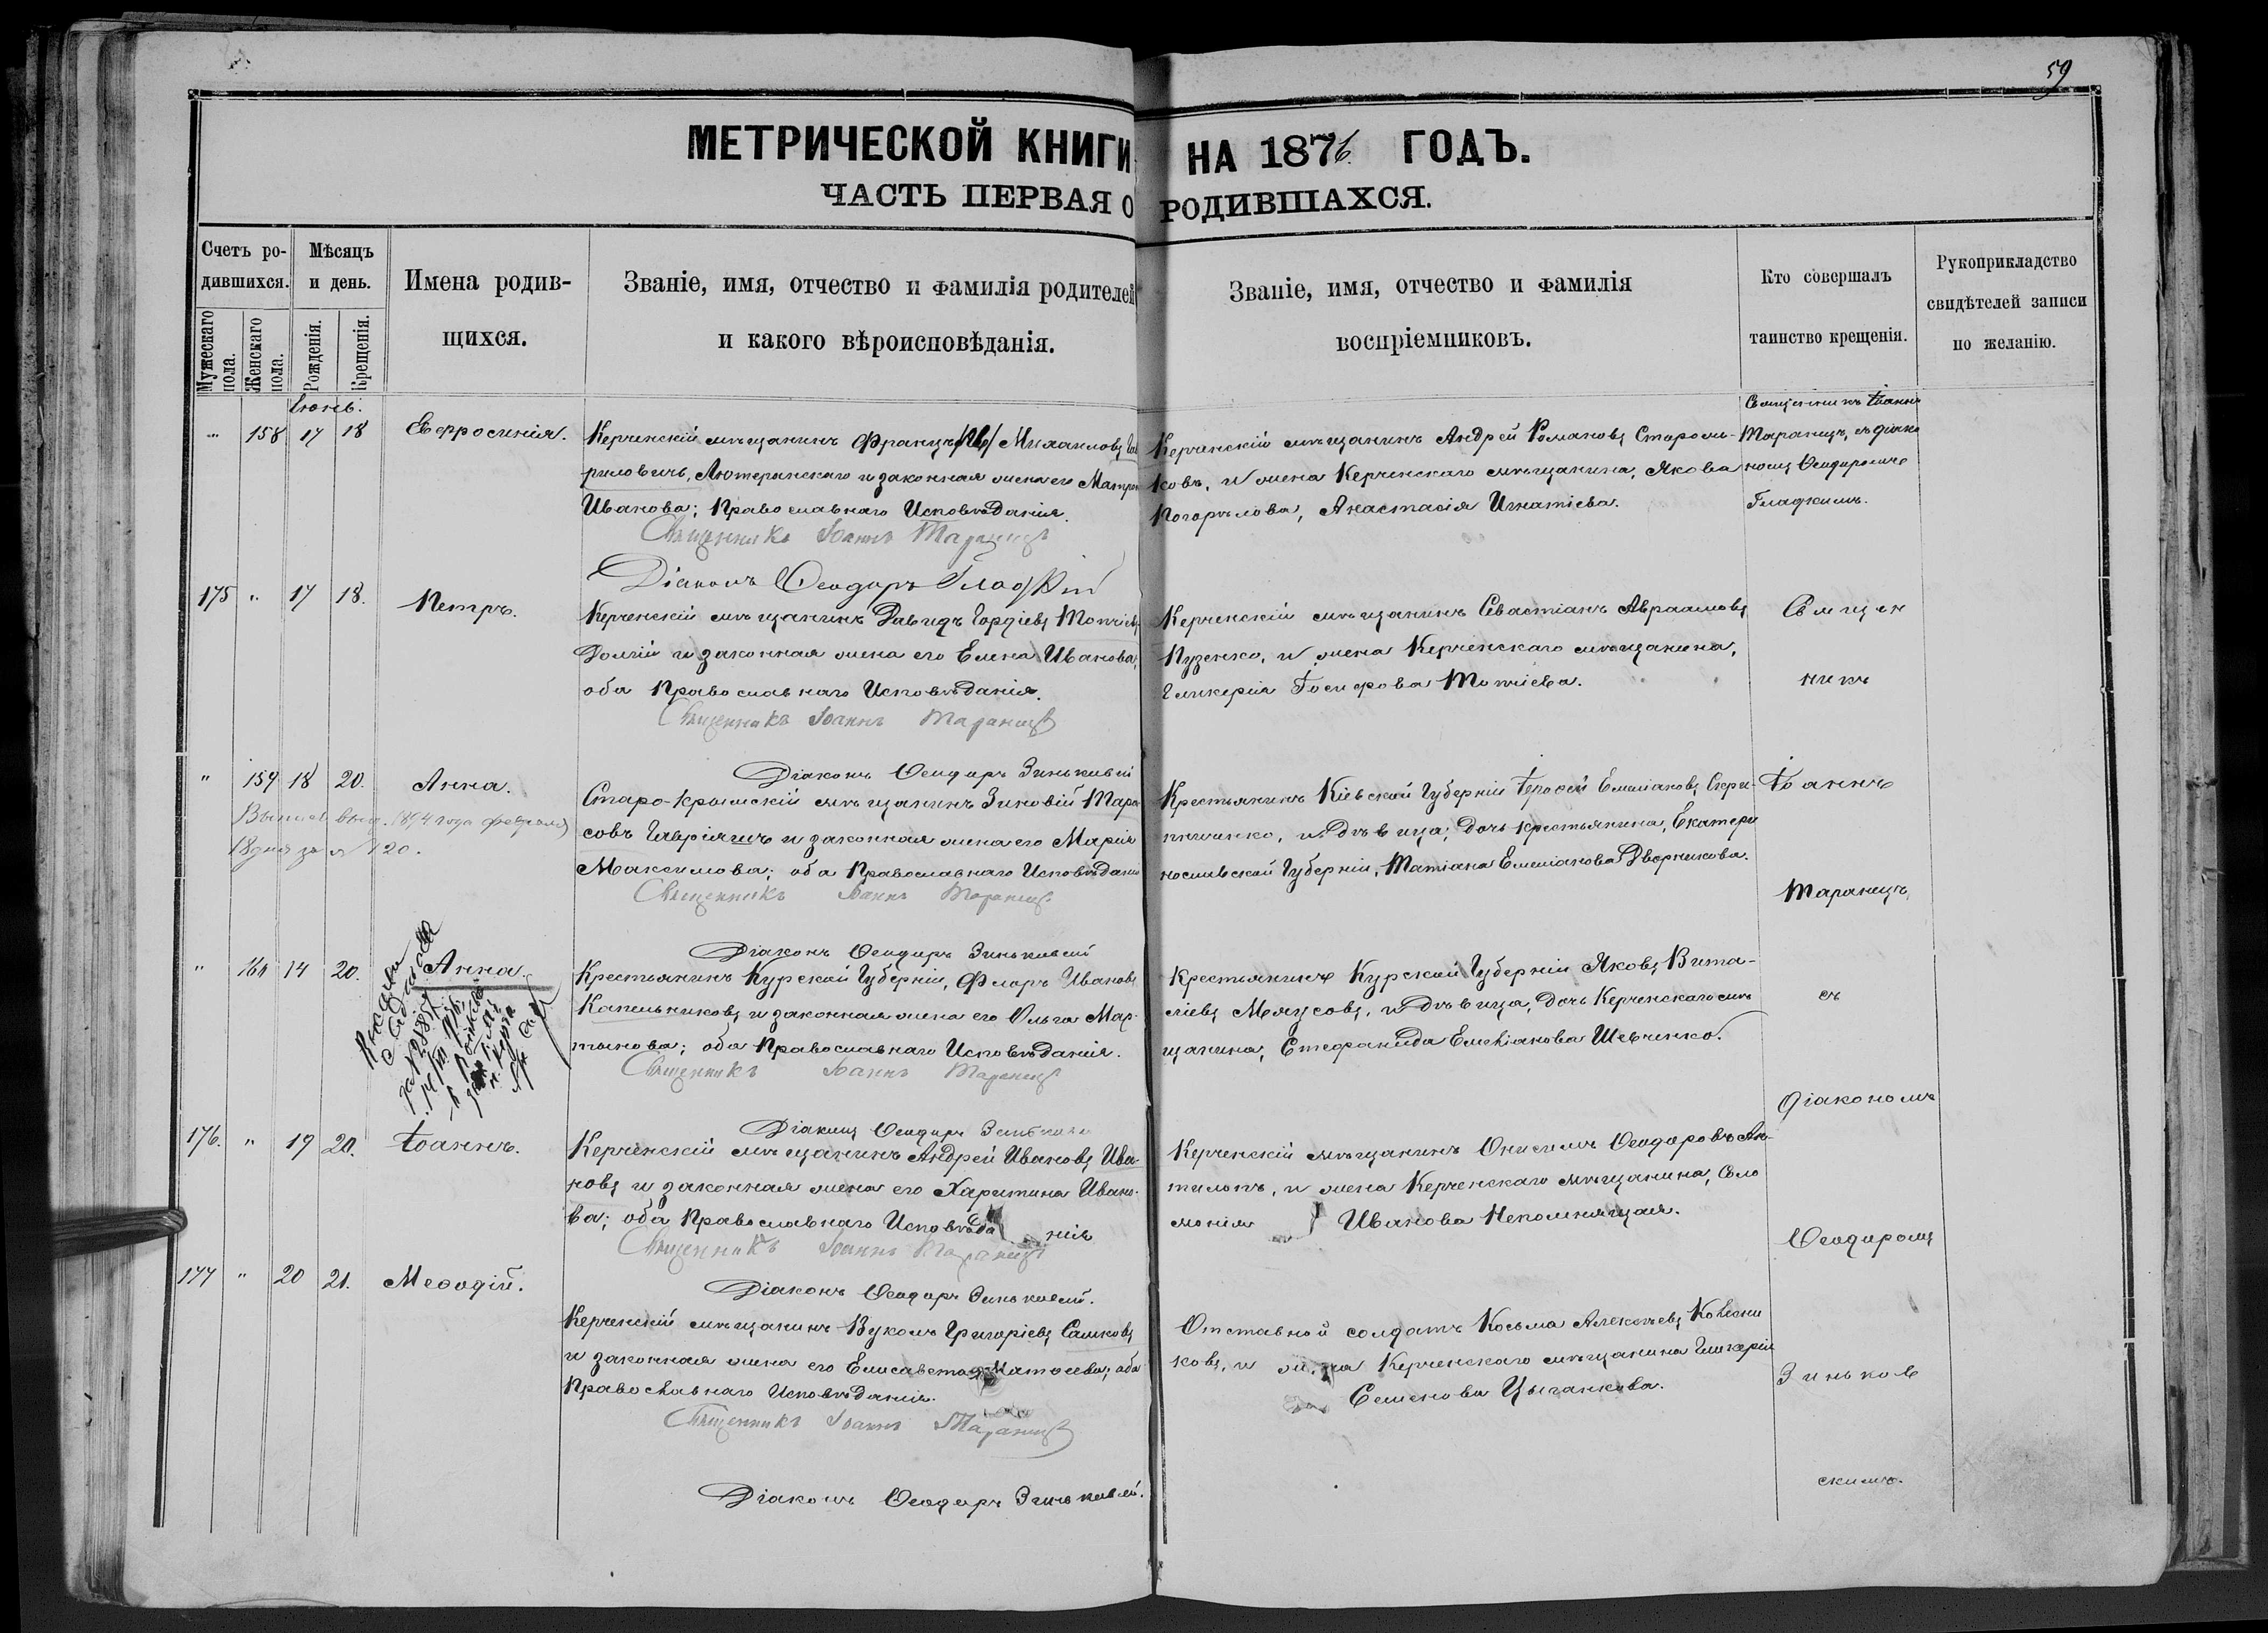 59
МЕТРИЧЕСКОЙ КНИГИ НА 1876 ГОДЪ.
ЧАСТЬ ПЕРВАЯ О РОДИВШАХСЯ.
Счетъ ро-
дившихся.
Мужескаго пола.
Женскаго пола.
Мѣсяцъ
и день.
Рожденія.
Крещенія.
Имена родив-
щихся.
Званіе, имя, отчество и фамилія родителей
и какого вѣроисповѣданія.
Званіе, имя, отчество и фамилія
воспріемниковъ.
Кто совершалъ
таинство крещенія.
Рукоприкладство
свидѣтелей записи
по желанію.
Іюнь.
" 158 17 18 Евфросинія.
Керченскій мѣщанинъ Францъ Михаиловъ
риловичъ, Лютеранскаго и законная жена его
Иванова; Православнаго Исповѣданія.
Священникъ Іоаннъ Таранецъ
Діаконъ Ѳеодоръ
Керченскій мѣщанинъ Андрей Романовъ
ковъ, и жена Керченскаго мѣщанина, Якова
Погорѣлова, Анастасія Игнатіева.
Священникъ Іоаннъ
Таранецъ, съ діако
номъ Ѳеодоромъ
Гладкимъ.
175 " 17 18. Петръ.
Керченскій мѣщанинъ Давидъ Гордіевъ
Долгій и законная жена его Елена Иванова,
оба Православнаго Исповѣданія.
Священникъ Іоаннъ Таранецъ
Діаконъ Ѳеодоръ Зиньковскій
Керченскій мѣщанинъ Севастіанъ Авраамовъ
Пузенко, и жена Керченскаго мѣщанина,
Гликерія Іосифова
Священ
никъ
" 159 18 20. Анна.
1894 года февраля
18 дня за № 120.
Старо-Крымскій мѣщанинъ Зиновій Тара
совъ и законная жена его Марія
Максимова; оба Православнаго Исповѣданія
Священникъ Іоаннъ Таранецъ
Діаконъ Ѳеодоръ Зиньковскій
Крестьянинъ Кіевской Губерніи Іероѳей Емиліановъ
и дѣвица, дочь крестьянина, Екатери
нославской Губерніи, Татіана Емиліанова Дворникова.
Іоаннъ
Таранецъ,
" 160 14 20. Анна.
Крестьянинъ Курской Губерніи, Флоръ Ивановъ
Капельниковъ и законная жена его Ольга Мар-
тынова; оба Православнаго Исповѣданія.
Священникъ Іоаннъ Таранецъ
Діаконъ Ѳеодоръ
Крестьянинъ Курской Губерніи Яковъ Вита-
ліевъ и дѣвица, дочь Керченскаго мѣ
щанина, Стефанида Емеліанова Шевченко.
съ
діакономъ
176. " 19 20. Іоаннъ.
Керченскій мѣщанинъ Андрей Ивановъ Ива-
новъ и законная жена его Харитина Ивано-
ва; оба Православнаго Исповѣданія
Священникъ Іоаннъ Таранецъ
Діаконъ Ѳеодоръ Зиньковскій.
Керченскій мѣщанинъ Онисимъ Ѳеодоровъ Ан-
и жена Керченскаго мѣщанина, Соло
монія Иванова Непомнящая.
Ѳеодоромъ
177 " 20 21. Меѳодій.
Керченскій мѣщанинъ Вуколъ Григоріевъ Сашковъ
и законная жена его Елисавета оба
Православнаго Исповѣданія.
Священникъ Іоаннъ Таранецъ
Діаконъ Ѳеодоръ Зиньковскій.
Отставной солдатъ Косьма Алексѣевъ Колесни
ковъ, и жена Керченскаго мѣщанина Гликерія
Семенова Цыганкова.
Зиньков
скимъ.